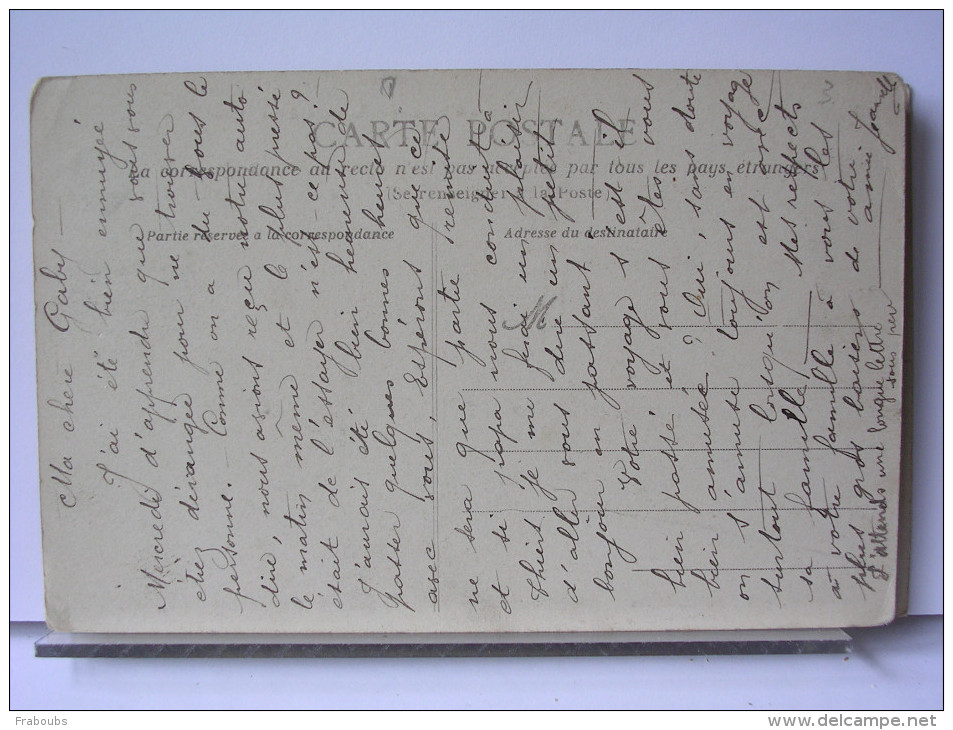 CARTE POSTALE
La correspondance au recto n'est pas acceptée par tous les pays étrangers
(Se renseigner à la Poste)
Partie réservée a la correspondance
Adresse du destinataire
Ma chère Gaby
J'ai été bien ennuyé
Mercredi d'apprendre que vous vous
étiez dérangée pour ne trouver
personne. Comme on a du vous le
dire, nous avions reçu notre auto
le matin même et le plus pressé
était de l'essayer n'est-ce pas?
J'aurais été bien heureuse de
passer quelques bonnes heures
avec vous, Espérons que ce
ne sera que partie remise
et si papa nous conduit à
Thiers je me ferai un plaisir
d'aller vous dire un petit
bonjour en passant
Votre voyage s'est il
bien passé et vous êtes vous
bien amusée? Oui, sans doute
on s'amuse toujours en voyage
surtout lorsqu'on est avec
sa famille. Mes respects
à votre famille à vous les
plus gros baisers de votre
amie Jeanne
J'attends une longue lettre
sous peu
Fraboubs
www.delcampe.net